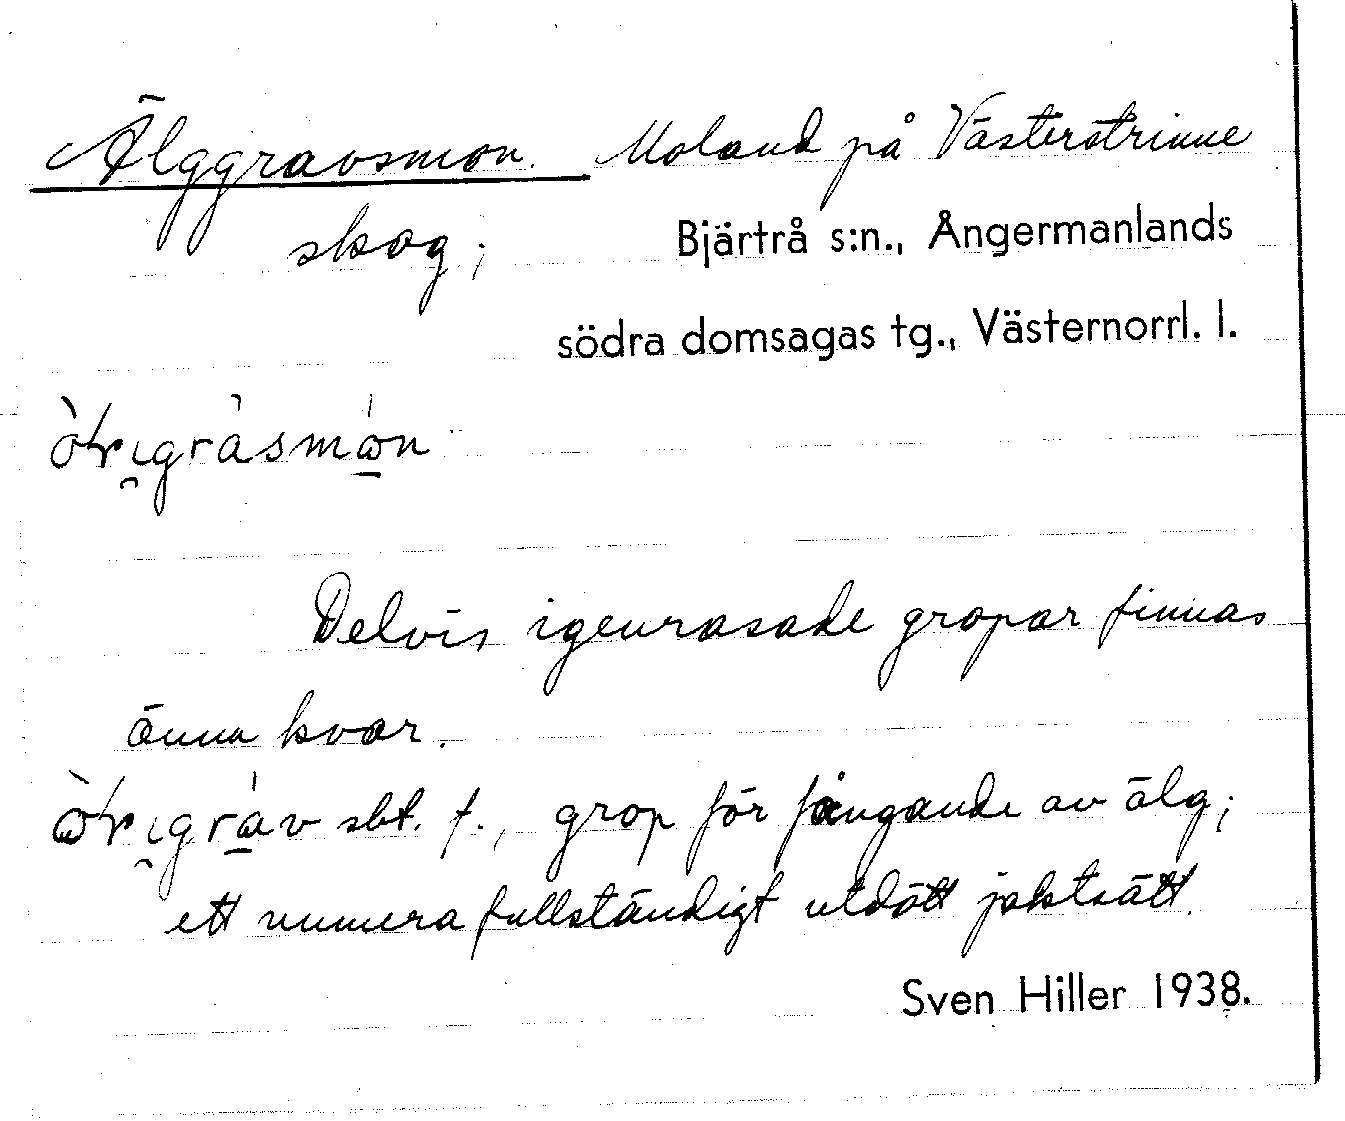 Älggravsmon. Moland på Västerstrinne
skog; Bjärtrå s:n., Ångermanlands
södra domsagas tg., Västernorrl. l.
Delvis igenrasade gropar finnas
ännu kvar.
sbt. f., grop för fångande av älg;
ett numera fullständigt utdött jaktsätt.
Sven Hiller 1938.